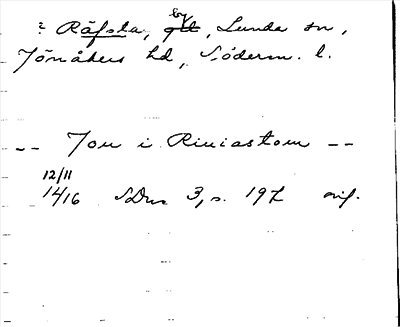 ? Räfsta, by gll, Lunda sn,
Jönåkers hd, Söderm. l.
-- Jon i Riuiastom --
12/11
1416 SDns 3, s. 197 avf.